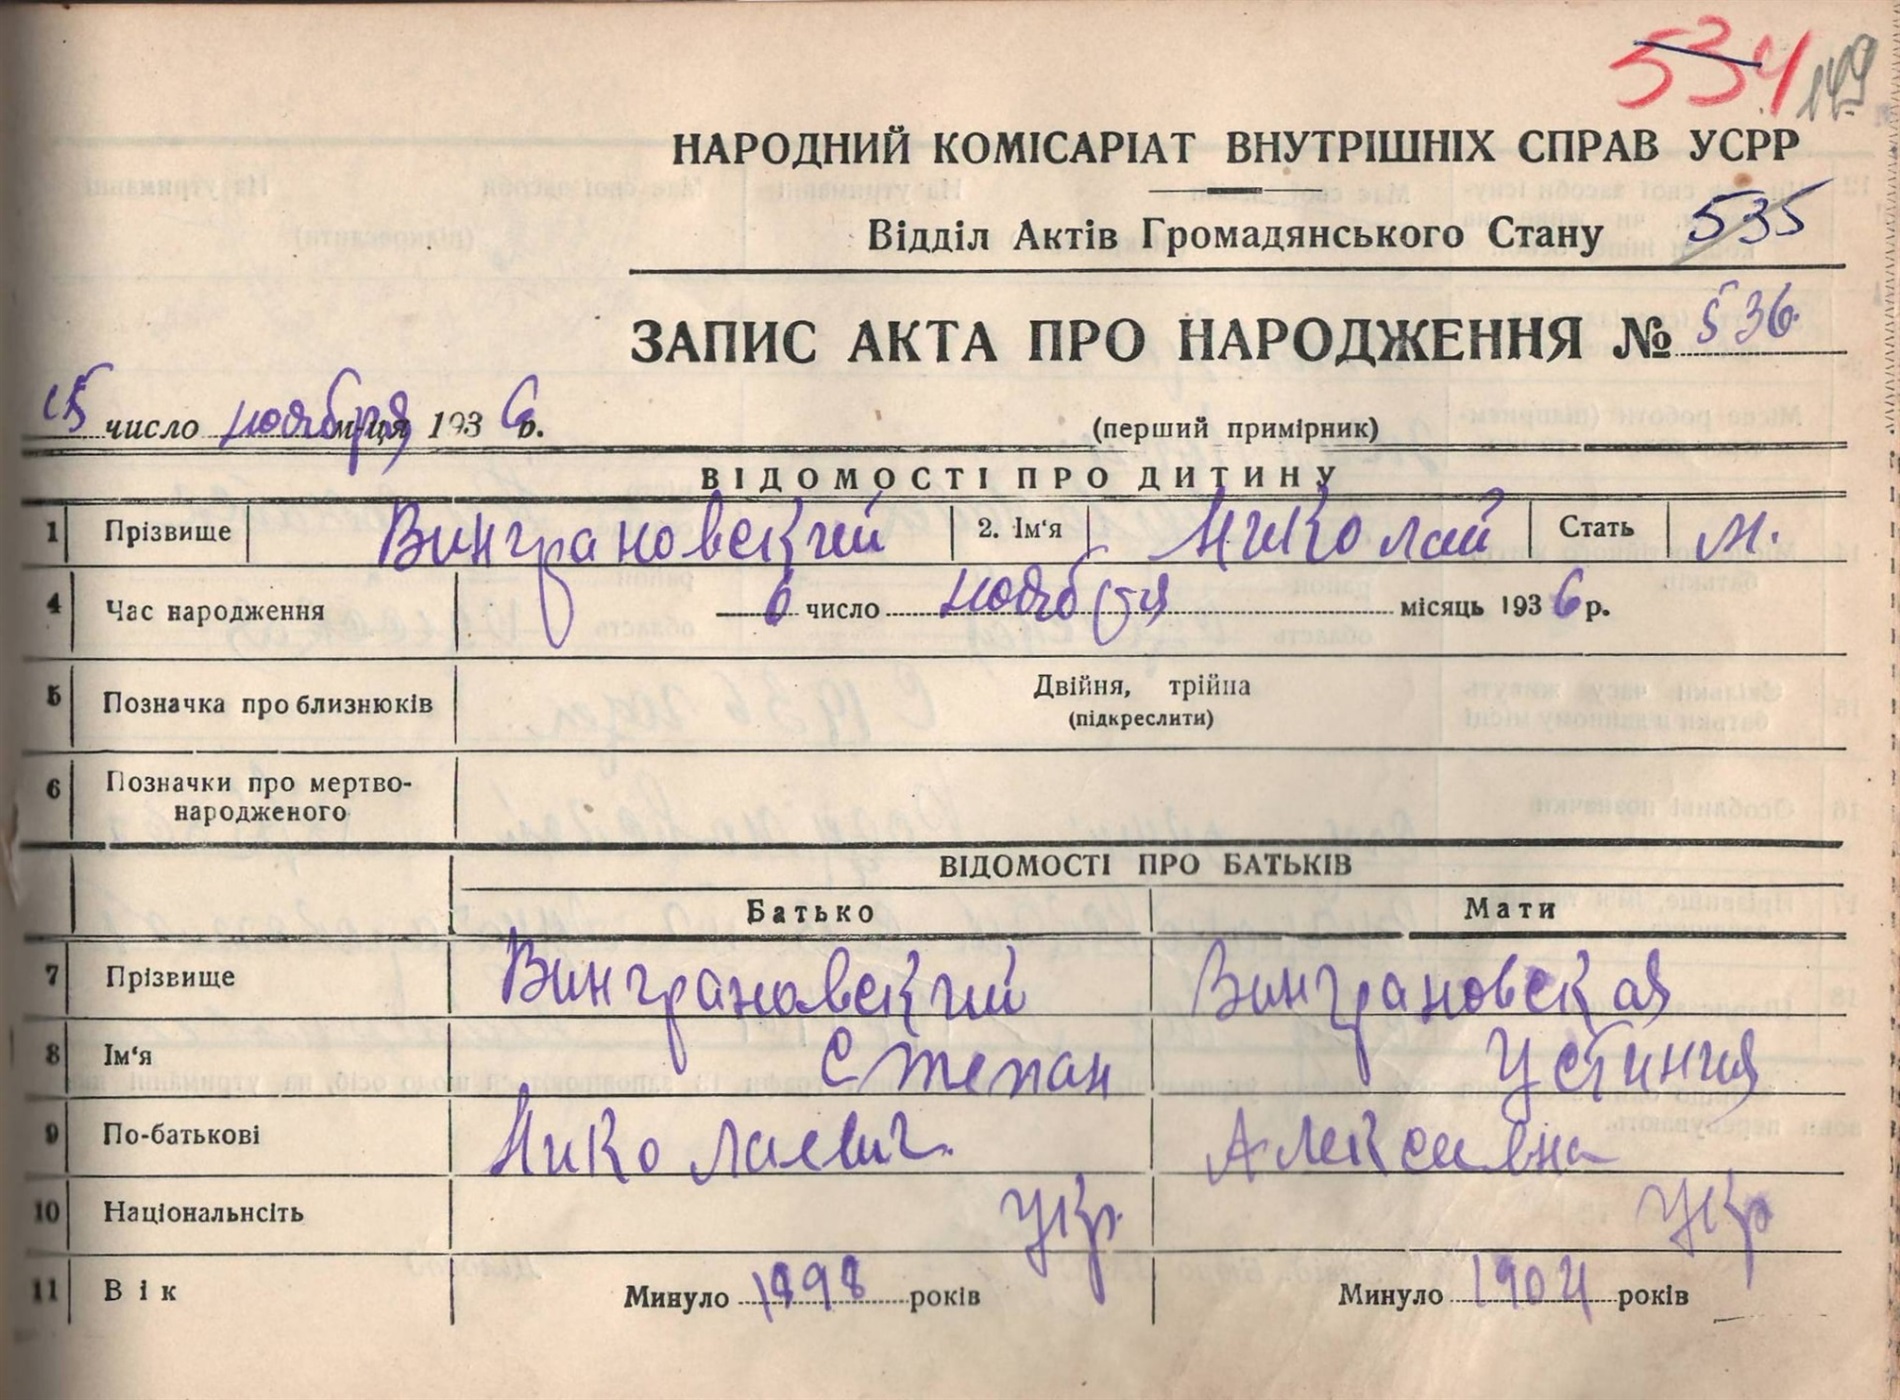 534 149
НАРОДНИЙ КОМІСАРІАТ ВНУТРІШНІХ СПРАВ УСРР
Відділ Актів Громадянського Стану 535
ЗАПИС АКТА ПРО НАРОДЖЕННЯ № 536
15 число ноября м-ця 1936 р. (перший примірник)
ВІДОМОСТІ ПРО ДИТИНУ
1 Прізвище Винграновский 2. Ім'я Николай Стать м.
4 Час народження 6 число ноября місяць 1936 р.
5 Позначка про близнюків Двійня, трійна
(підкреслити)
6 Позначки про мертво-
народженого
ВІДОМОСТІ ПРО БАТЬКІВ
Батько Мати
7 Прізвище Винграновский Винграновская
8 Ім'я Степан Устиния
9 По-батькові Николаевич Алексеевна
10 Національнсіть укр. укр
11 Вік Минуло 1898 років Минуло 1904 років